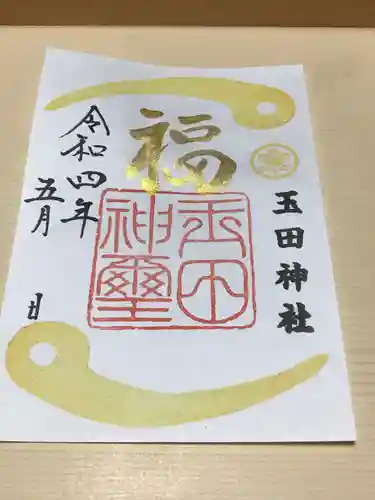 玉田神社
福
玉田
神璽
令和四年
五月
日